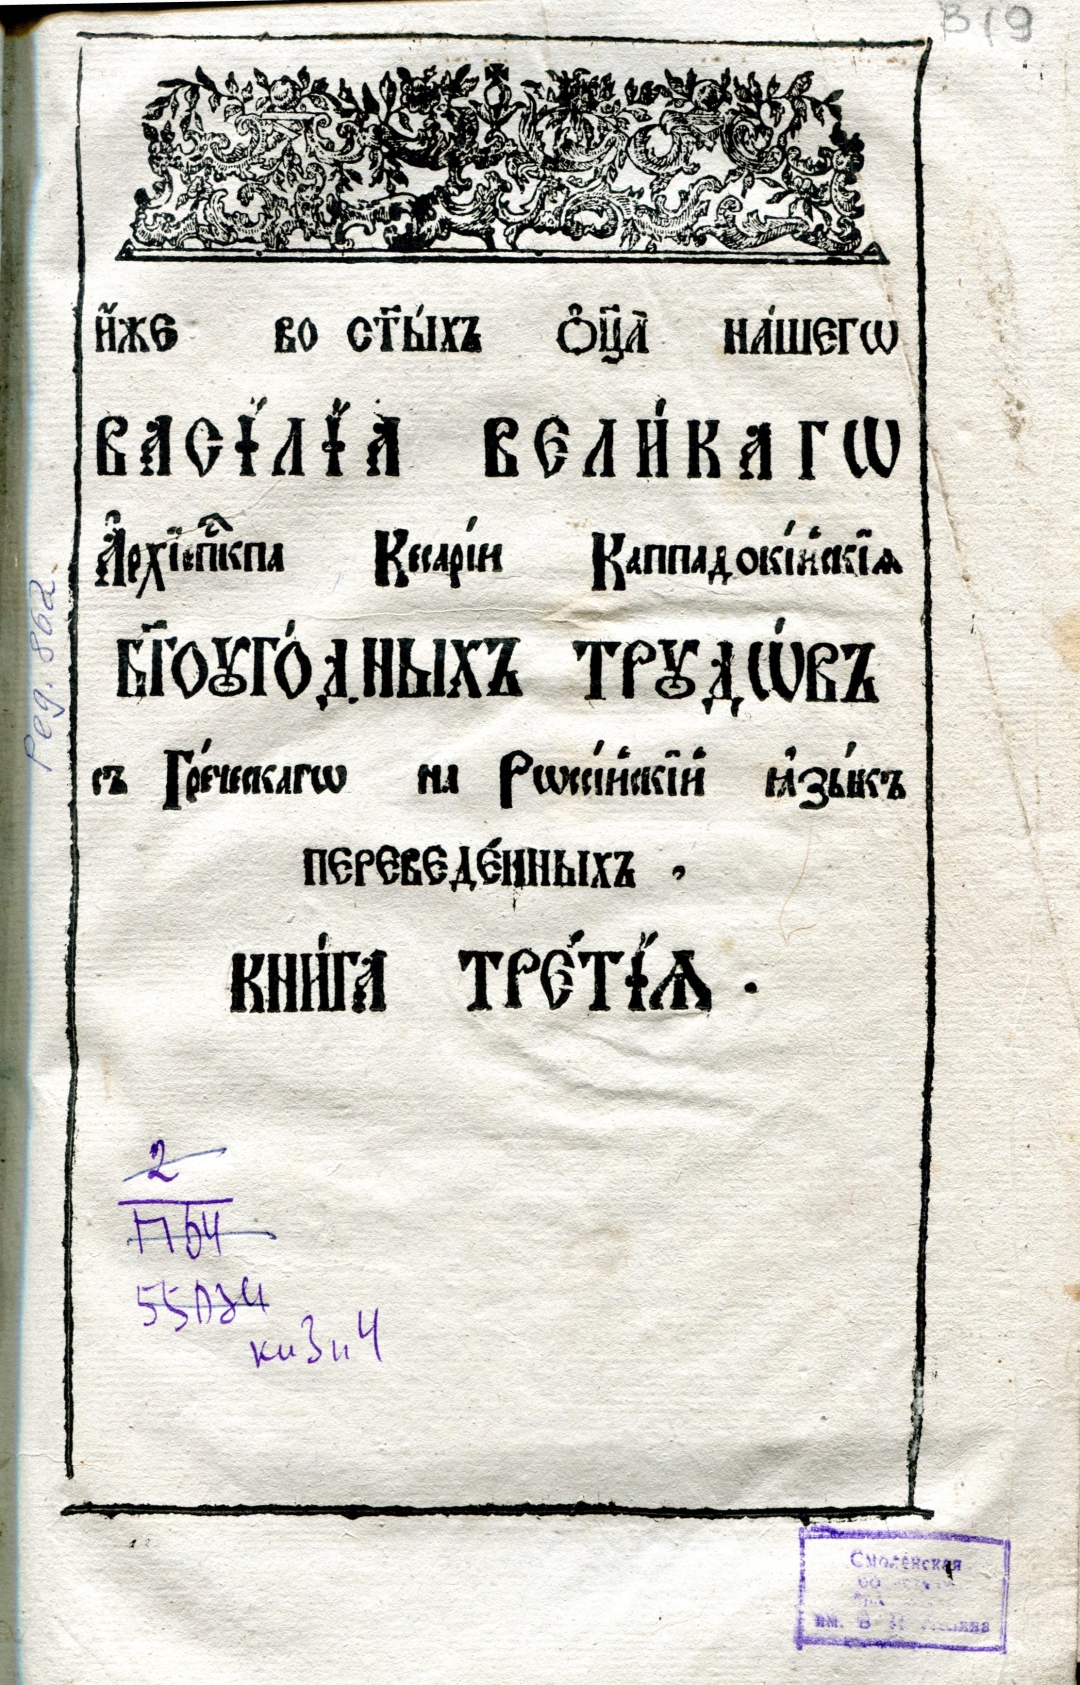 В19
и҆́же во ст҃ы́хъ ѻ҆ц҃а̀ на́шегѡ
васі́лїа вели́кагѡ
А҆рхїепⷭ҇кпа Кесарі́и Каппадокі́йскїѧ
бг҃оꙋго́дныхъ трꙋдѡ́въ
съ Гре́ческагѡ на Рѡссі́йскїй ꙗ҆зы́къ
переведе́нныхъ ,
кни́га тре́тїѧ .
Ред. 862
2
П64
кн 3 и 4
Смоленская
им. В И Ленина